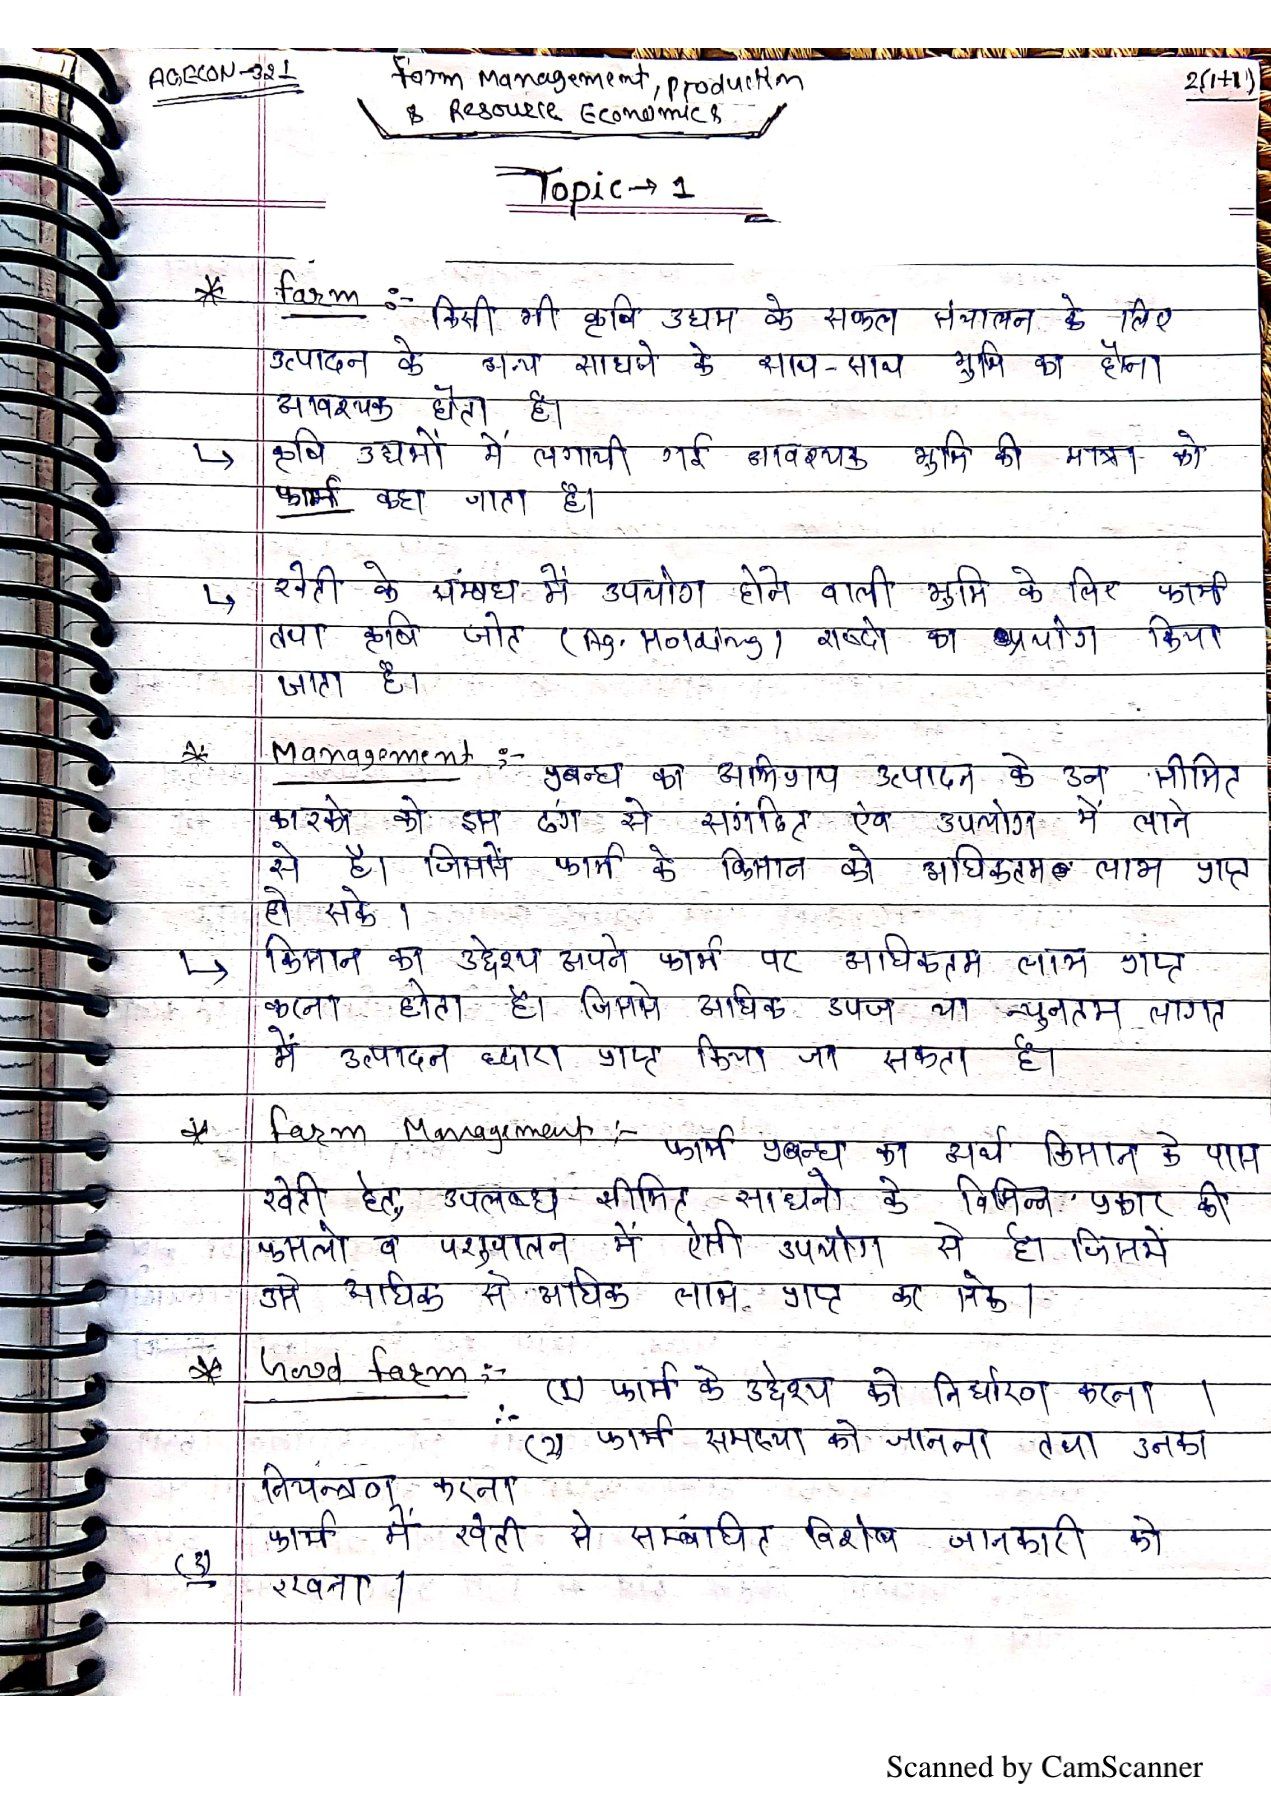 AGECON-321
Farm Management, Production
2(1+1)
& Resource Economics
Topic → 1
* Farm :- किसी भी कृषि उद्यम के सफल संचालन के लिए
उत्पादन के अन्य साधनो के साथ-साथ भुमि का होना
आवश्यक होता है।
↳ कृषि उद्यमों में लगायी गई आवश्यक भुमि की मात्रा को
फार्म कहा जाता है।
↳ खेती के सम्बंध में उपयोग होने वाली भुमि के लिए फार्म
तथा कृषि जोत (Ag. Holding) शब्दो का प्रयोग किया
जाता है।
* Management :- प्रबन्ध का अभिप्राय उत्पादन के उन सीमित
कारको को इस ढंग से संगठित एंव उपयोग में लाने
से है। जिससे फार्म के किसान को अधिकतम लाभ प्राप्त
हो सके।
↳ किसान का उद्देश्य अपने फार्म पर अधिकतम लाभ प्राप्त
करना होता है। जिससे अधिक उपज या न्युनतम लागत
में उत्पादन द्वारा प्राप्त किया जा सकता है।
* Farm Management :- फार्म प्रबन्ध का अर्थ किसान के पास
खेती हेतु, उपलब्ध सीमित साधनो के विभिन्न प्रकार की
फसलो व पशुपालन में ऐसी उपयोग से है। जिसमें
उसे अधिक से अधिक लाभ प्राप्त कर सके।
* Good Farm :- (1) फार्म के उद्देश्य को निर्धारण करना ।
(2) फार्म समस्या को जानना तथा उनका
नियंन्त्रण करना
(3) फार्म में खेती से सम्बंधित विशेष जानकारी को
रखना ।
Scanned by CamScanner